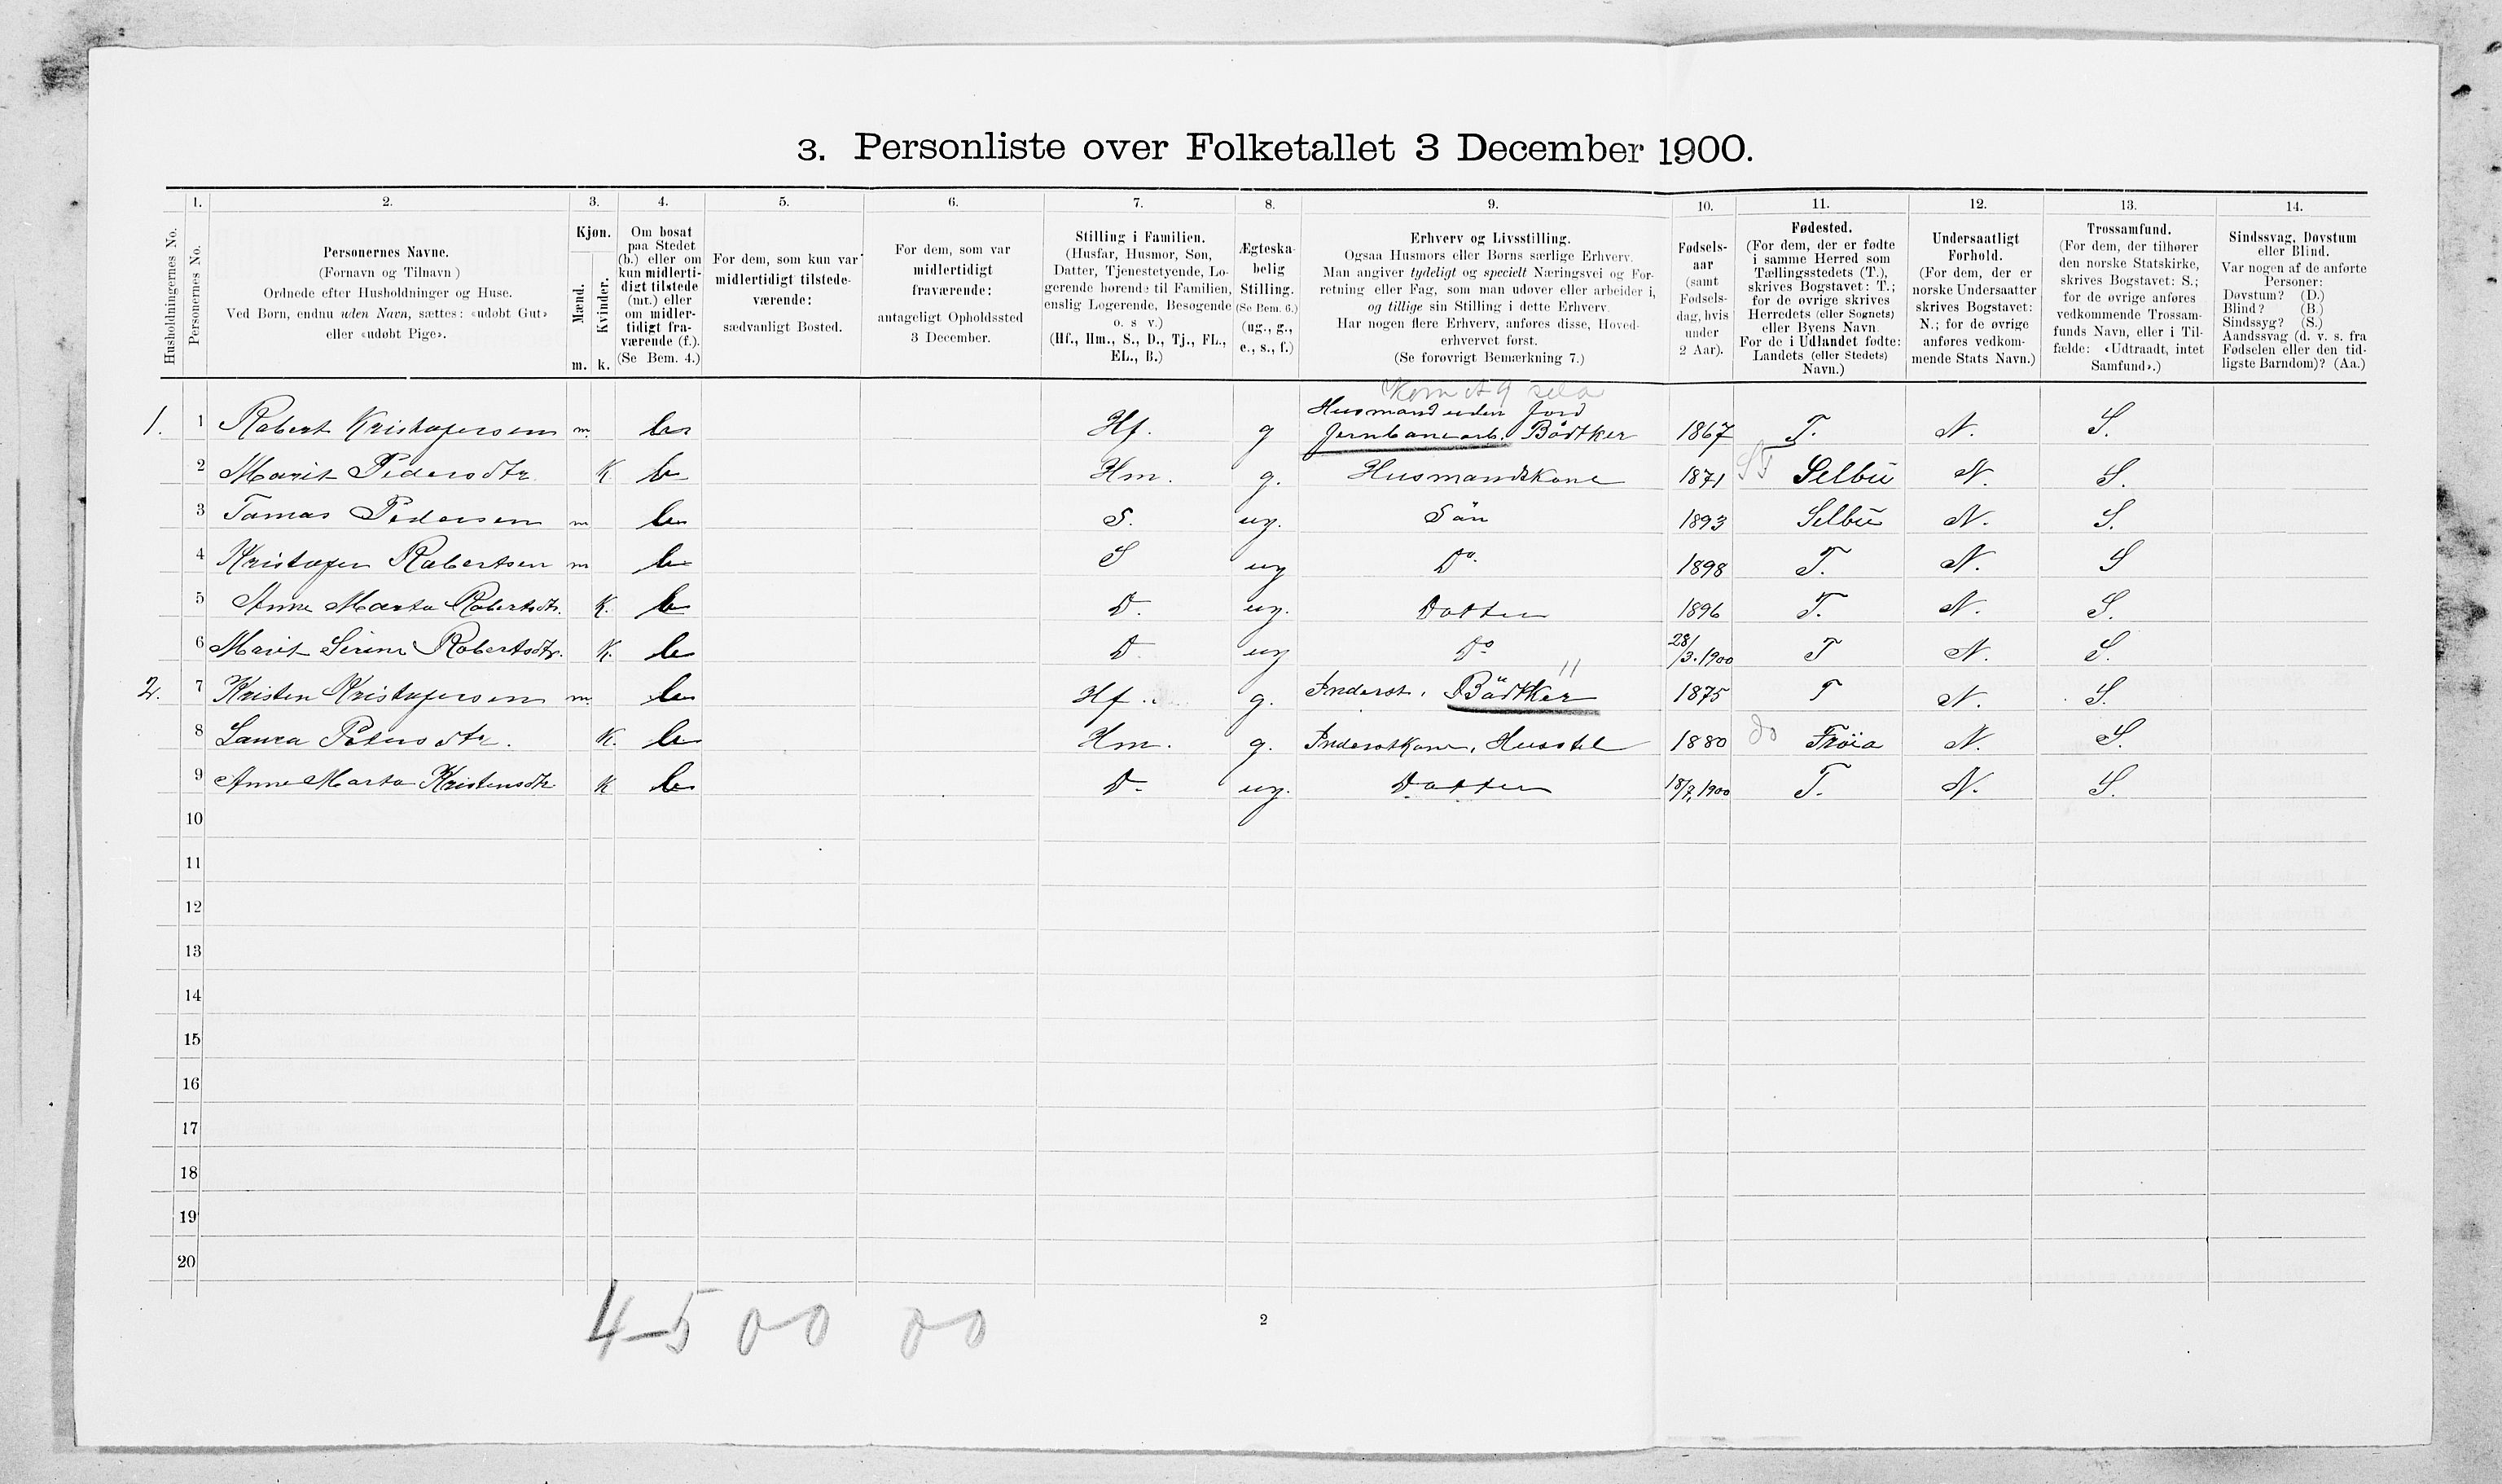 3. Personliste over Folketallet 3 December 1900.
1. 2. 3. 4. 5. 6. 7. 8. 9. 10. 11. 12. 13. 14.
Husholdningernes No.
Personernes No.
Personernes Navne.
(Fornavn og Tilnavn)
Ordnede efter Husholdninger og Huse.
Ved Børn, endnu uden Navn, sættes: «udøbt Gut»
eller «udøbt Pige».
Kjøn.
Mænd.
Kvinder.
m. k.
Om bosat
paa Stedet
(b.) eller om
kun midlerti-
digt tilstede
(mt.) eller
om midler-
tidigt fra-
værende (f.).
(Se Bem. 4.)
For dem, som kun var
midlertidigt tilstede-
værende:
sædvanligt Bosted.
For dem, som var
midlertidigt
fraværende:
antageligt Opholdssted
3 December.
Stilling i Familien.
(Husfar, Husmor, Søn,
Datter, Tjenestetyende, Lo-
gerende hørende til Familien,
enslig Logerende, Besøgende
o. s v.)
(Hf., Hm., S., D., Tj., FL.,
EL., B.)
Ægteska-
belig
Stilling.
(Se Bem. 6.)
(ug., g.,
e., s., f.)
Erhverv og Livsstilling.
Ogsaa Husmors eller Børns særlige Erhverv.
Man angiver tydeligt og specielt Næringsvei og For-
retning eller Fag, som man udøver eller arbeider i,
og tillige sin Stilling i dette Erhverv.
Har nogen flere Erhverv, anføres disse, Hoved-
erhvervet først.
(Se forøvrigt Bemærkning 7.)
Fødsels-
aar
(samt
Fødsels-
dag, hvis
under
2 Aar).
Fødested.
(For dem, der er fødte
i samme Herred som
Tællingsstedets (T.),
skrives Bogstavet: T.;
for de øvrige skrives
Herredets (eller Sognets)
eller Byens Navn.
For de i Udlandet fødte:
Landets (eller Stedets)
Navn.)
Undersaatligt
Forhold.
(For dem, der er
norske Undersaatter
skrives Bogstavet:
N.; for de øvrige
anføres vedkom-
mende Stats Navn.)
Trossamfund.
(For dem, der tilhører
den norske Statskirke,
skrives Bogstavet: S.;
for de øvrige anføres
vedkommende Trossam-
funds Navn, eller i Til-
fælde: «Udtraadt, intet
Samfund».)
Sindssvag, Døvstum
eller Blind.
Var nogen af de anførte
Personer:
Døvstum? (D.)
Blind? (B.)
Sindssyg? (S.)
Aandssvag (d. v. s. fra
Fødselen eller den tid-
ligste Barndom)? (Aa.)
Husmand uden Jord
1. 1 Robert Kristofersen m. b. Hf. g Jernbanearb. Bödtker 1867 T. N. S.
2 Marit Pedersdtr. K b Hm. g. Husmandskone 1871 Selbu N. S.
3 Tomas Pedersen m b S. ug. Sön 1893 Selbu N. S.
4 Kristofer Robertsen m b S ug Do. 1898 T. N. S
5 Anne Marta Robertsdtr. K. b D. ug. Datter 1896 T. N. S.
6 Marit Serine Robertsdtr. K. b D ug Do 28/3. 1900 T N. S.
2. 7 Kristen Kristofersen m. b Hf. g. Inderst, Bödtker 1875 T N. S.
8 Laura Petersdtr. K. b Hm. g. Inderstkone, Husstel 1880 do Fröia N. S.
9 Anne Marta Kristensdtr K b D. ug. Datter 18/7, 1900 T. N. S.
10
11
12
13
14
15
16
17
18
19
20
4-5 00 00
2